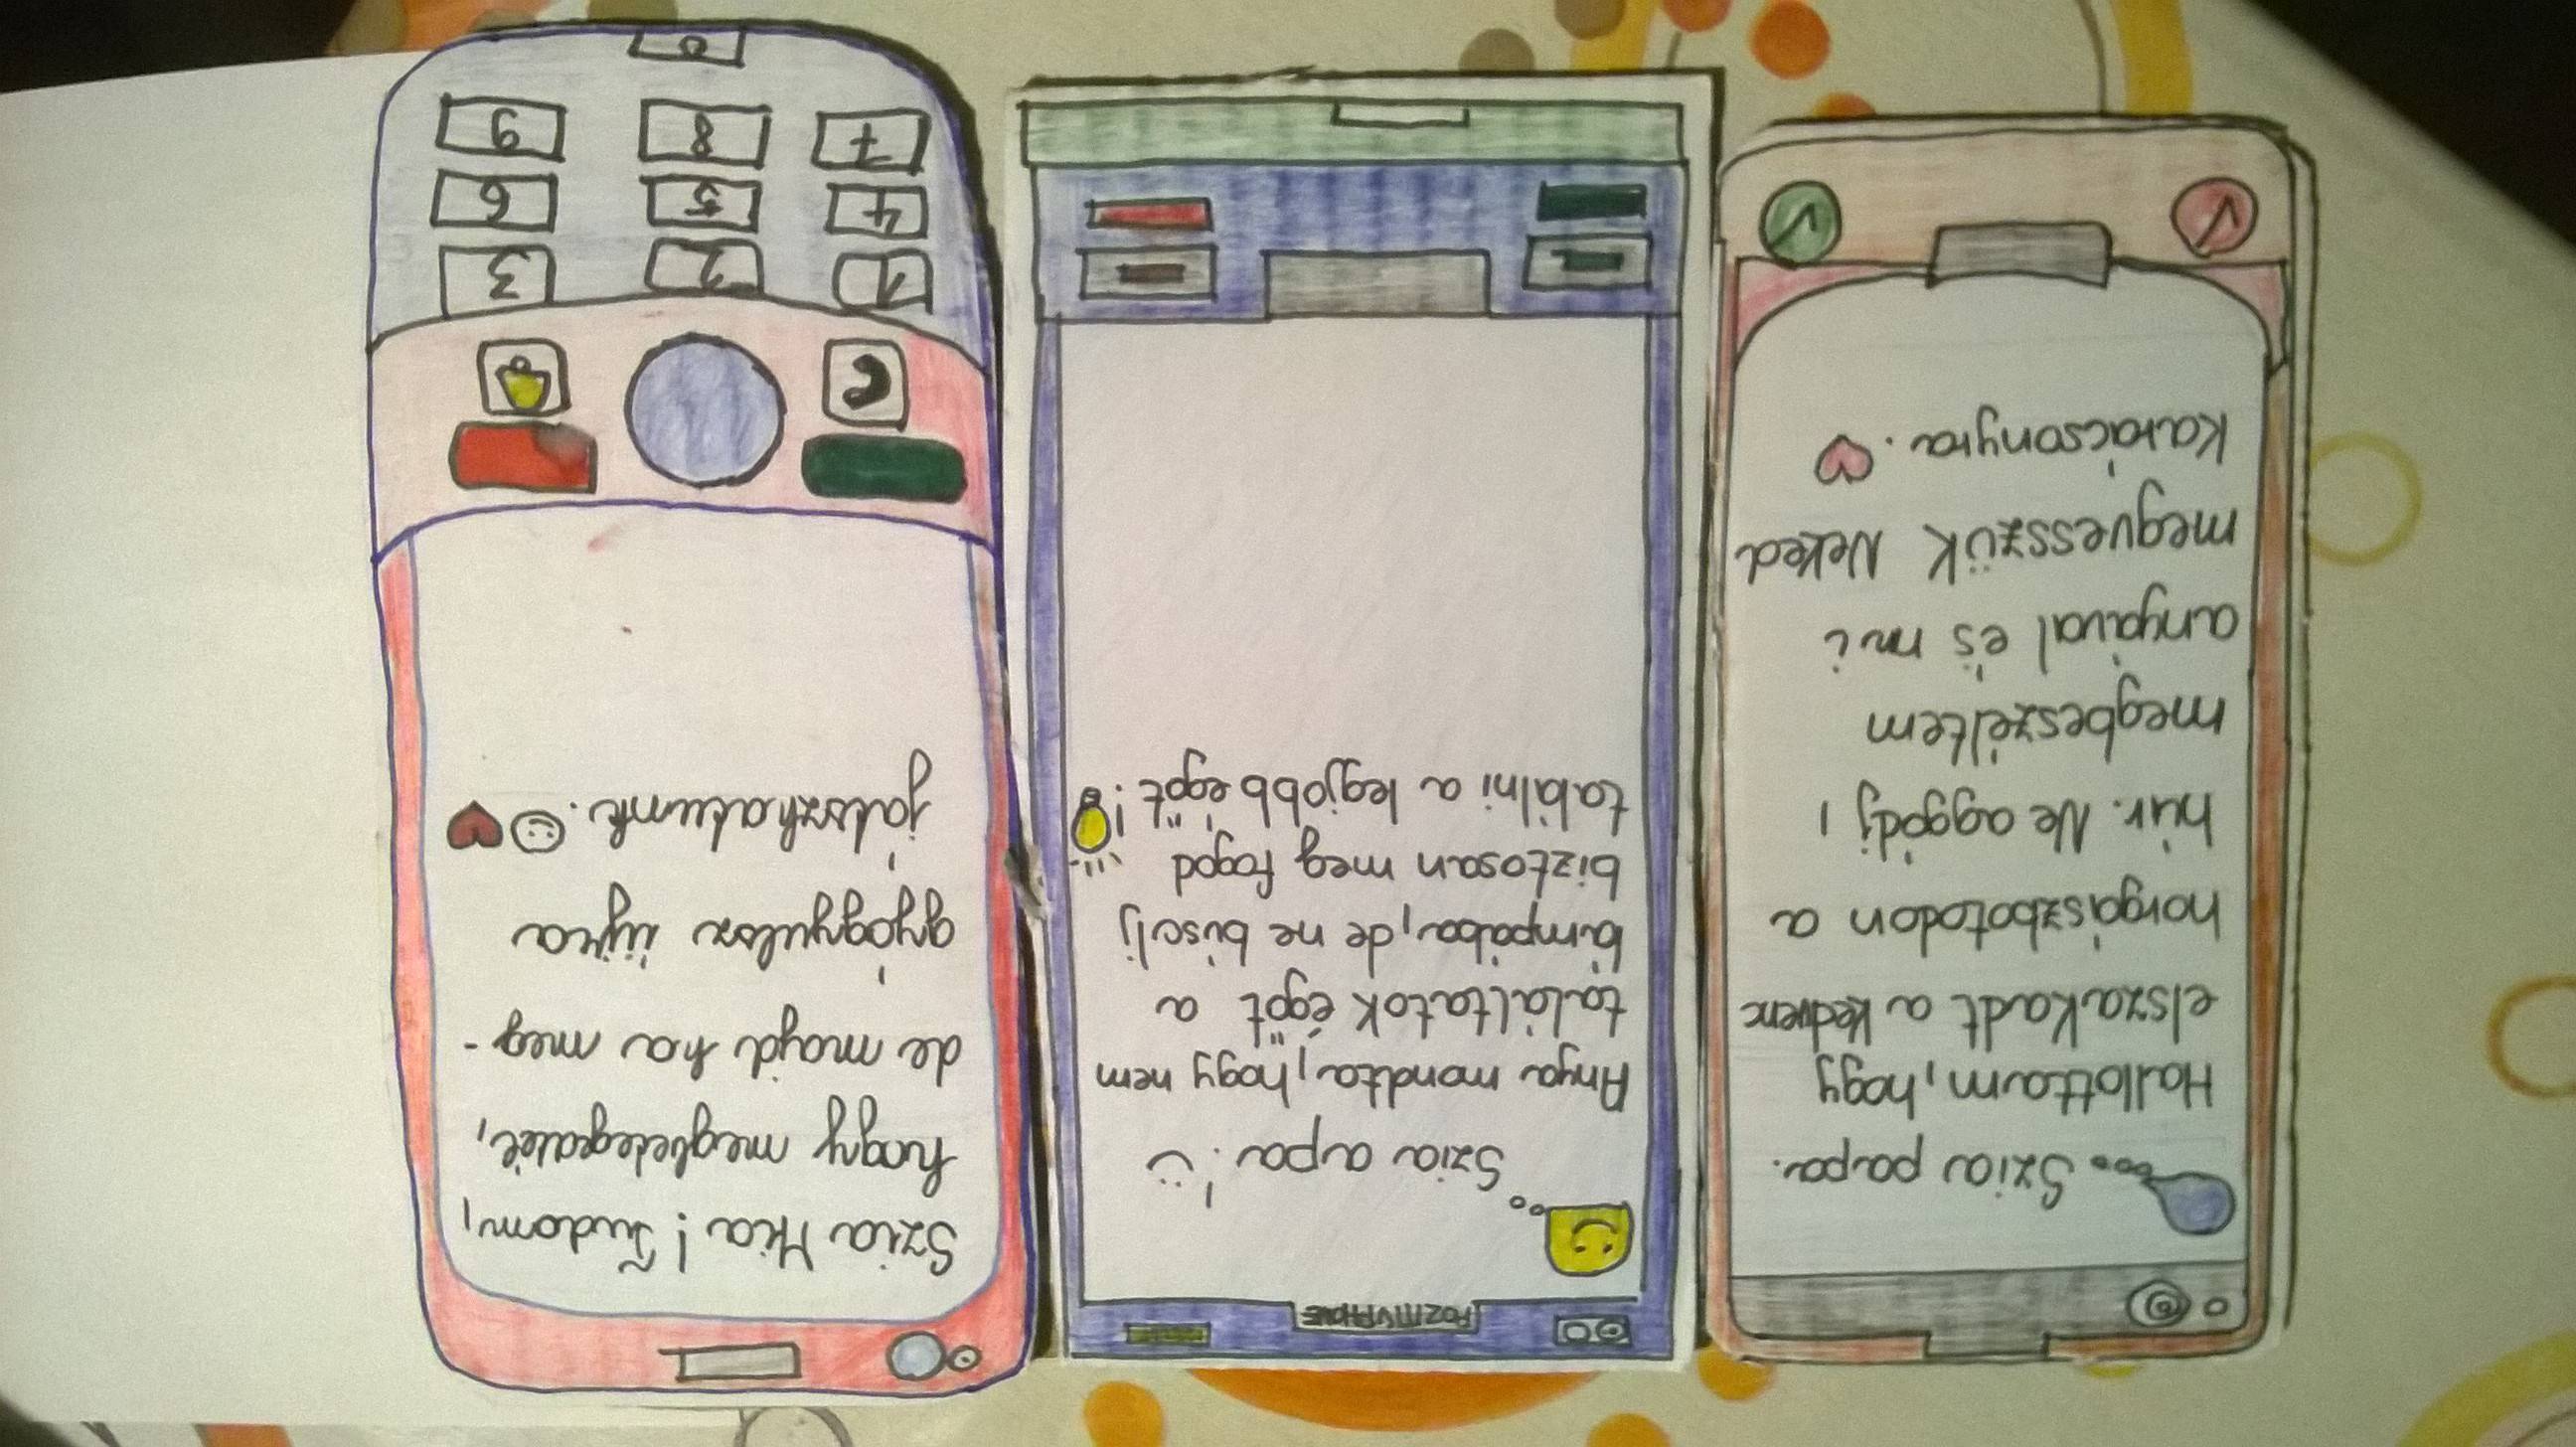 Szia papa.
Hallottam, hogy
elszakadt a kedvenc
horgászbotodon a
húr. Ne aggódj,
megbeszéltem
anyával és mi
megvesszük Neked
Karácsonyra.
POZITIVPHONE
Szia apa!
Anya mondta, hogy nem
találtatok égőt a
lámpába, de ne búsulj
biztosan meg fogod
találni a legjobb égőt!
Szia Mia! Tudom,
hogy megbetegedtél,
de majd ha meg-
gyógyulsz újra
játszhatunk.
1 2 3
4 5 6
7 8 9
0